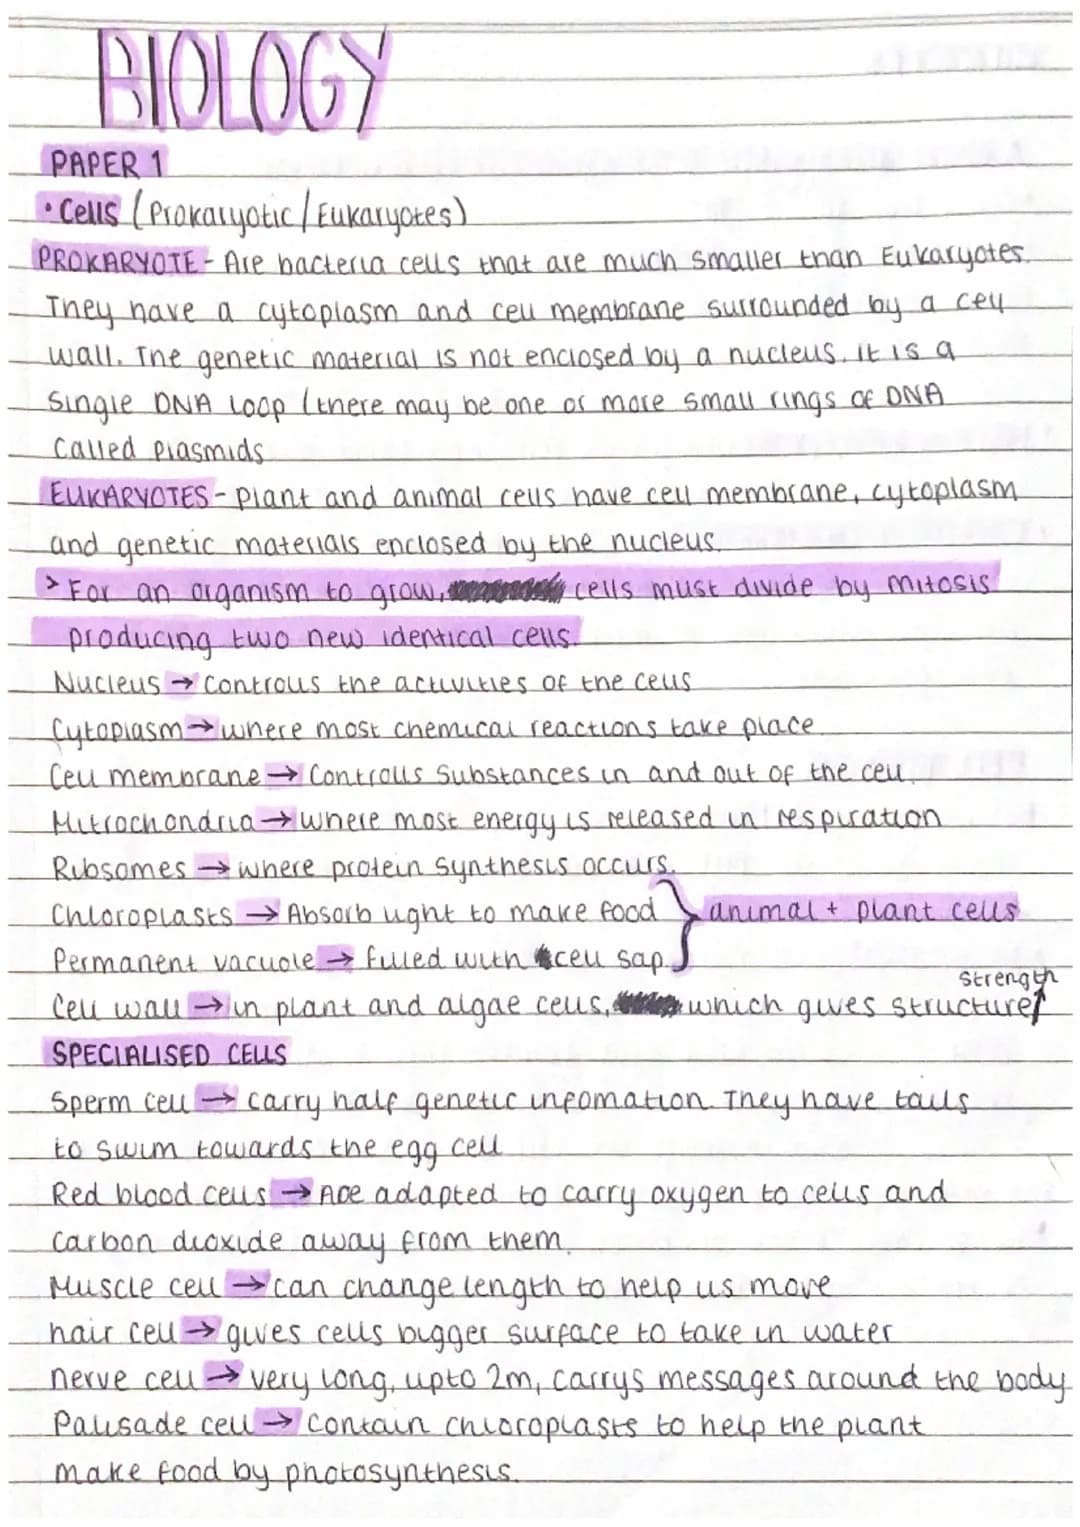 BIOLOGY
PAPER 1
• Cells (Prokaryotic/Eukaryotes)
PROKARYOTE - Are bacteria cells that are much smaller than Eukaryotes.
They have a cytoplasm and cell membrane surrounded by a cell
wall. The genetic material is not enclosed by a nucleus. it is a
single DNA loop (there may be one or more small rings of DNA
called plasmids
EUKARYOTES - Plant and animal cells have cell membrane, cytoplasm
and genetic materials enclosed by the nucleus.
> For an organism to grow, cells must divide by mitosis
producing two new identical cells.
Nucleus → Controlls the activities of the cells
Cytoplasm → where most chemical reactions take place.
Cell membrane → Controlls substances in and out of the cell.
Mitrochondria → where most energy is released in respiration
Ribsomes → where protein synthesis occurs.
Chloroplasts → Absorb light to make food } animal + plant cells
Permanent vacuole → filled with cell sap.
strength
Cell wall → in plant and algae cells, which gives structure↑
SPECIALISED CELLS
Sperm cell → carry half genetic infomation. They have tails
to swim towards the egg cell
Red blood cells → Are adapted to carry oxygen to cells and
carbon dioxide away from them.
Muscle cell → can change length to help us move
hair cell → gives cells bigger surface to take in water
nerve cell → very long, upto 2m, carrys messages around the body
Palisade cell → Contain chloroplasts to help the plant
make food by photosynthesis.